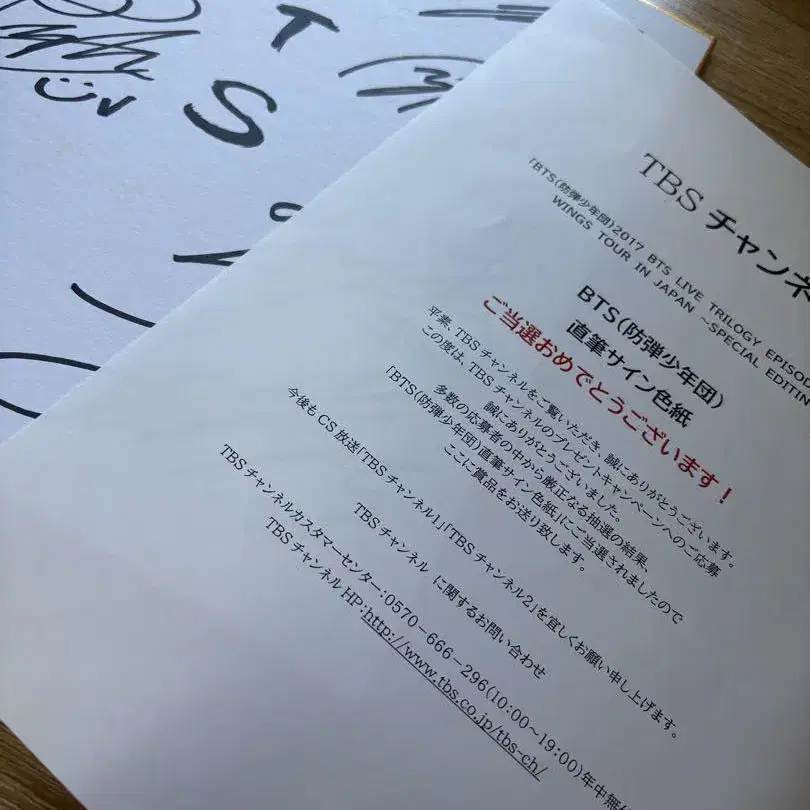 T
S
TBS チャンネ
「BTS(防弾少年団)2017 BTS LIVE TRILOGY EPISOD
WINGS TOUR IN JAPAN ～SPECIAL EDITIN
BTS(防弾少年団)
直筆サイン色紙
ご当選おめでとうございます！
平素、TBSチャンネルをご覧いただき、誠にありがとうございます。
この度は、TBSチャンネルのプレゼントキャンペーンへのご応募
誠にありがとうございました。
多数の応募者の中から厳正なる抽選の結果、
「BTS(防弾少年団)直筆サイン色紙」にご当選されましたので
ここに賞品をお送り致します。
今後も CS 放送「TBSチャンネル1」「TBSチャンネル2」を宜しくお願い申し上げます。
TBSチャンネル に関するお問い合わせ
TBSチャンネルカスタマーセンター:0570-666-296(10:00～19:00)年中無休
TBSチャンネルHP:http://www.tbs.co.jp/tbs-ch/